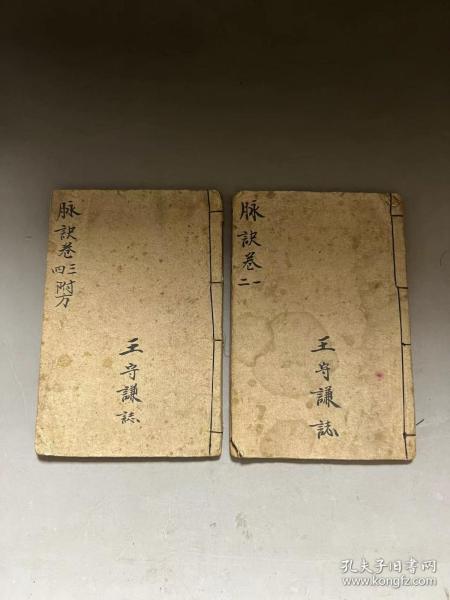 脉诀卷一二
王守謙誌
脉诀卷三四附方
王守謙誌
孔夫子旧书网
www.kongfz.com